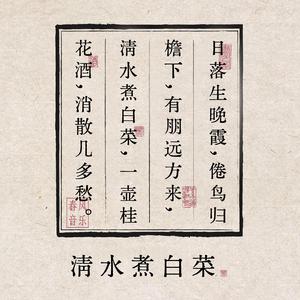 日落生晚霞，倦鸟归
檐下，有朋远方来，
清水煮白菜，一壶桂
花酒，消散几多愁。
清水煮白菜